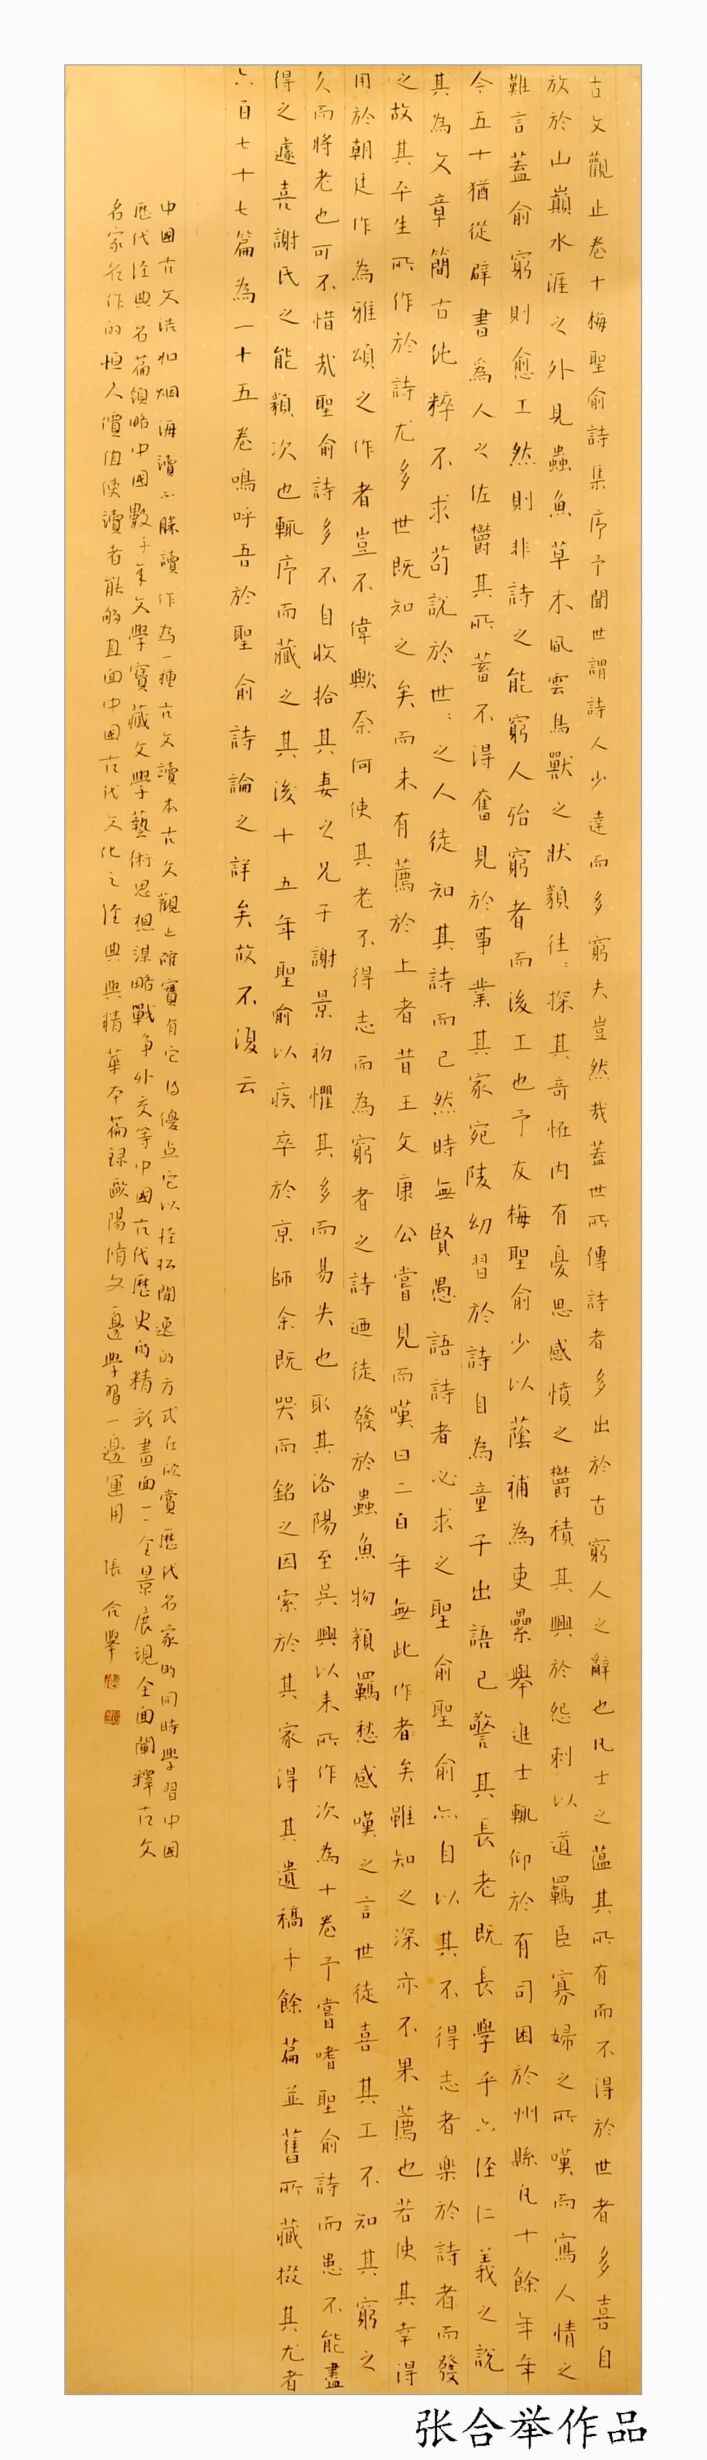 古文觀止卷十梅聖俞詩集序予聞世謂詩人少達而多窮夫豈然哉蓋世所傳詩者多出於古窮人之辭也凡士之蘊其所有而不得於世者多喜自
放於山巔水涯之外見蟲魚草木風雲鳥獸之狀類往〻探其奇怪內有憂思感憤之鬱積其興於怨刺以道羈臣寡婦之所嘆而寫人情之
難言蓋俞窮則愈工然則非詩之能窮人殆窮者而後工也予友梅聖俞少以蔭補為吏纍舉進士輒仰於有司困於州縣凡十餘年年
今五十猶從辟書為人之佐鬱其所蓄不得奮見於事業其家宛陵幼習於詩自為童子出語已警其長老既長學乎六經仁義之說
其為文章簡古純粹不求苟說於世〻之人徒知其詩而已然時無賢愚語詩者必求之聖俞聖俞亦自以其不得志者樂於詩者而發
之故其平生所作於詩尤多世既知之矣而未有薦於上者昔王文康公嘗見而嘆曰二百年無此作者矣雖知之深亦不果薦也若使其幸得
用於朝廷作為雅頌之作者豈不偉歟奈何使其老不得志而為窮者之詩迺徒發於蟲魚物類羈愁感嘆之言世徒喜其工不知其窮之
久而將老也可不惜哉聖俞詩多不自收拾其妻之兄子謝景初懼其多而易失也取其洛陽至吳興以來所作次為十卷予嘗嗜聖俞詩而患不能盡
得之遽喜謝氏之能類次也輒序而藏之其後十五年聖俞以疾卒於京師余既哭而銘之因索於其家得其遺稿千餘篇並舊所藏掇其尤者
六百七十七篇為一十五卷嗚呼吾於聖俞詩論之詳矣故不復云
中國古文浩如烟海讀不勝讀作為一種古文讀本古文觀止確實有它的優点它以輕松閒逸的方式在欣賞歷代名家的同時學習中國
歷代經典名篇領略中國數千年文學寶藏文學藝術思想謀略戰争外交等中國古代歷史的精彩畫面一一全景展現全面闡釋古文
名家名作的恒人價值使讀者能够直面中国古代文化之經典與精華本篇録歐陽脩文邊學習一邊運用 張合舉
张合举作品